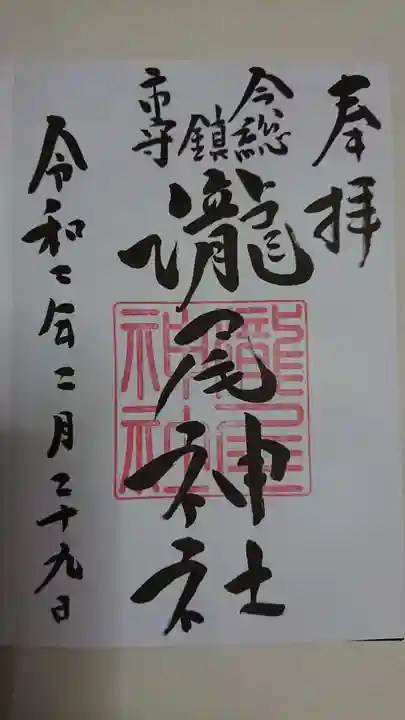 奉拝
今市
総鎮守
瀧尾神社
令和二年二月二十九日
瀧尾
神社